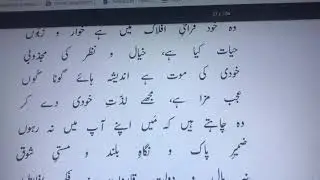 وہ خود فراخیِ افلاک میں ہے خوار و زبوں
حیات کیا ہے، خیال و نظر کی مجذوبی
خودی کی موت ہے اندیشہ ہائے گونا گوں
عجب مزا ہے، مجھے لذّتِ خودی دے کر
وہ چاہتے ہیں کہ مَیں اپنے آپ میں نہ رہوں
ضمیرِ پاک و نگاہِ بلند و مستیِ شوق
نہ مال و دولتِ قاروں، نہ فکرِ افلاطوں